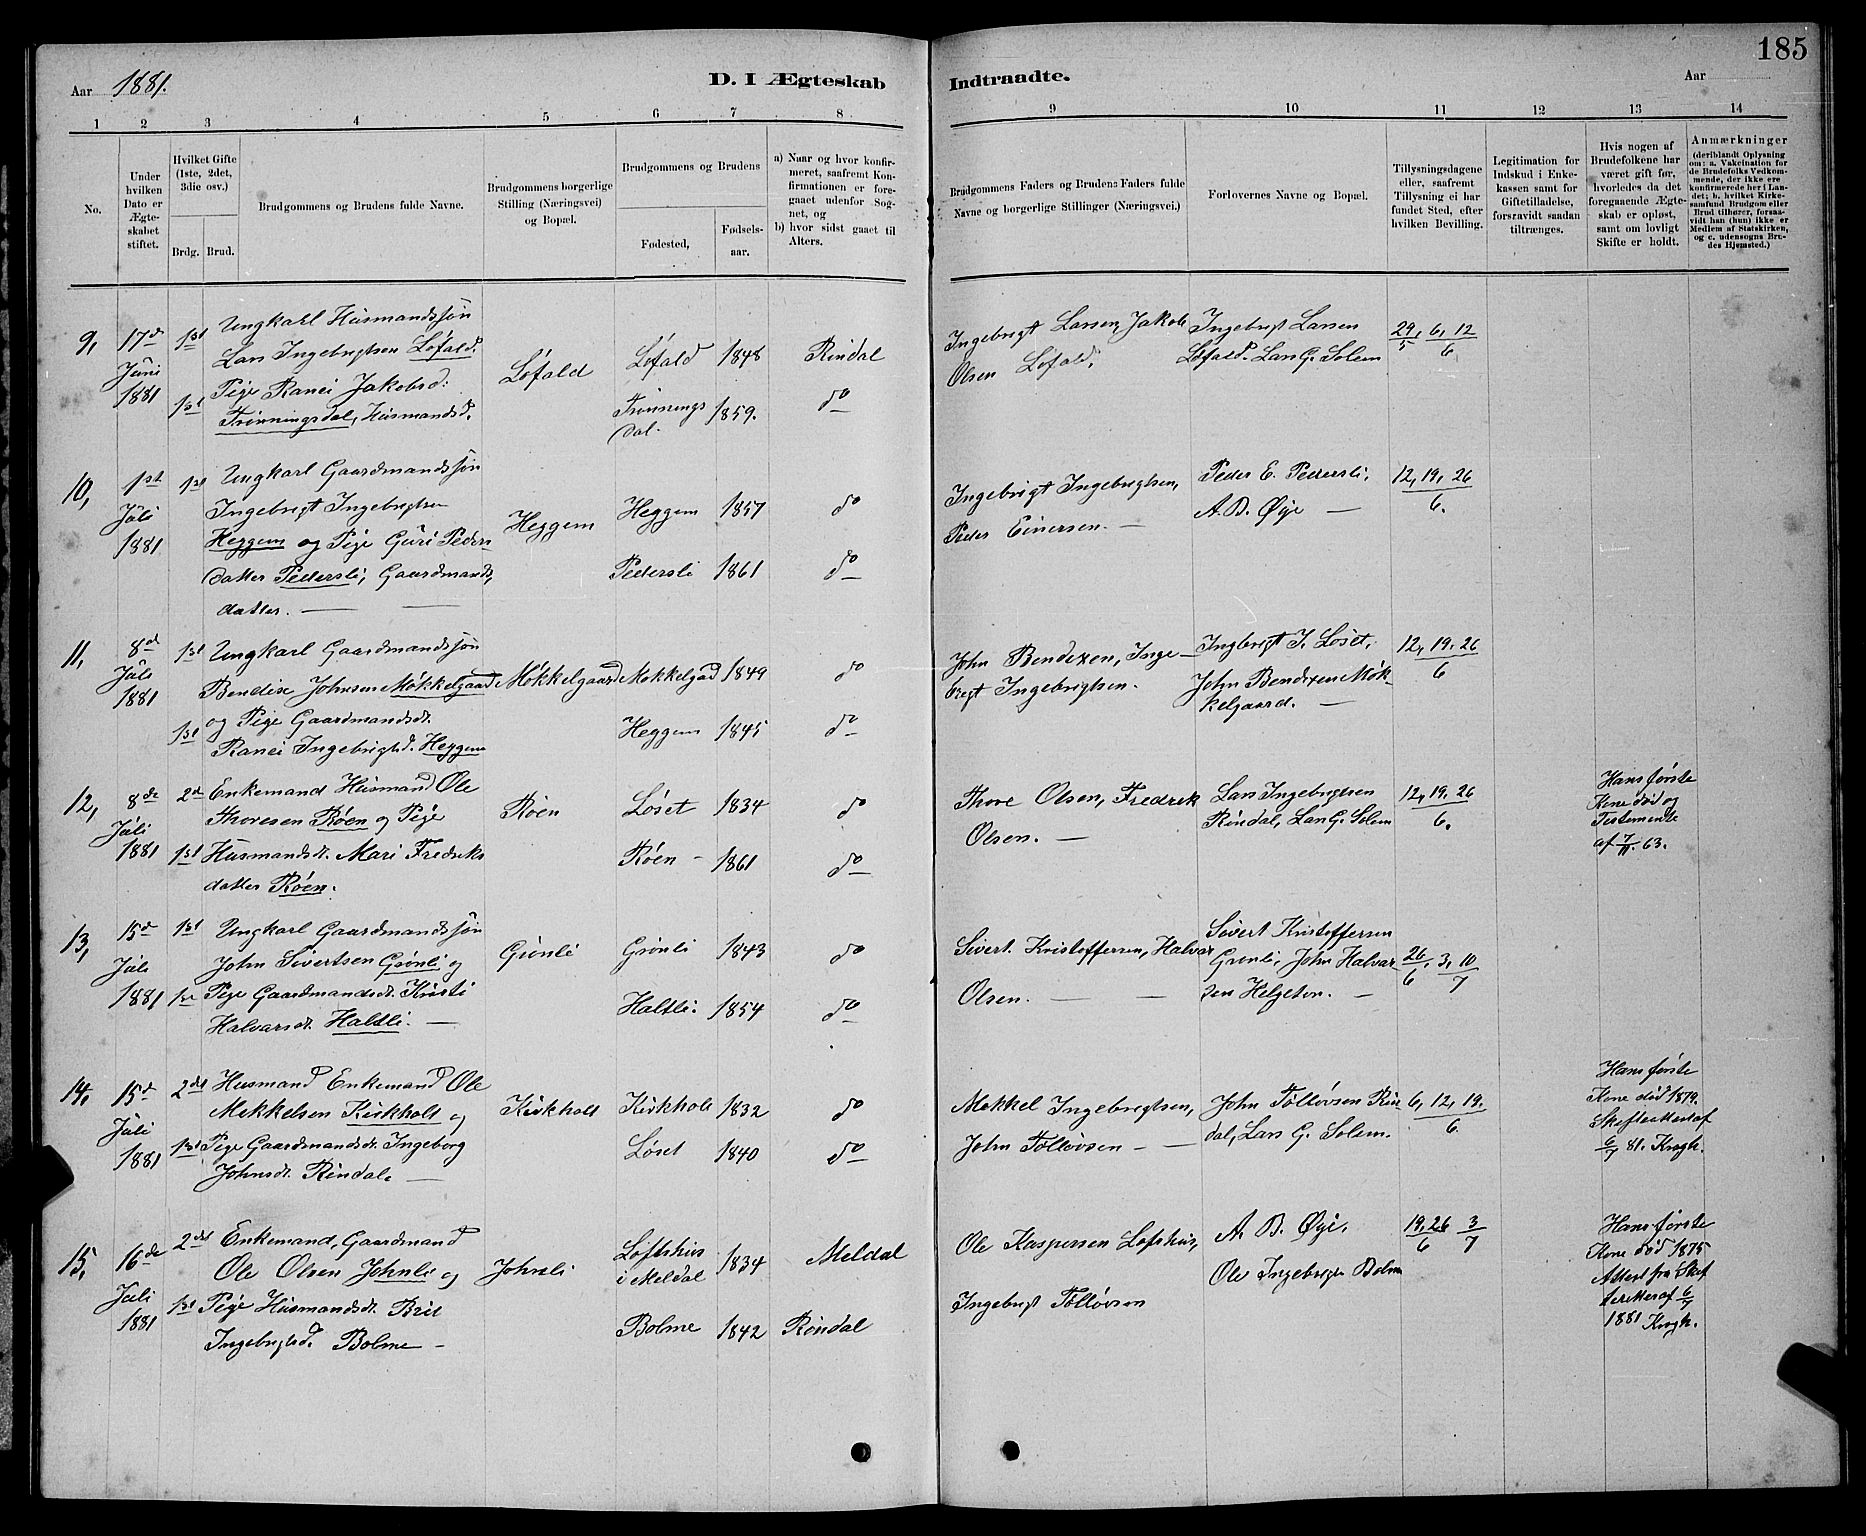 185
Aar 1881.
D. I Ægteskab
Indtraadte.
Aar
1 2 3 4 5 6 7 8
9 10 11 12 13 14
No.
Under hvilken Dato er Ægteskabet stiftet.
Hvilket Gifte (1ste, 2det, 3die osv.)
Brdg. Brud.
Brudgommens og Brudens fulde Navne.
Brudgommens borgerlige Stilling (Næringsvei) og Bopæl.
Brudgommens og Brudens
Fødested,
Fødselsaar.
a) Naar og hvor konfirmeret, saafremt Konfirmationen er foregaaet udenfor Sognet, og
b) hvor sidst gaaet til Alters.
Brudgommens Faders og Brudens Faders fulde Navne og borgerlige Stillinger (Næringsvei.)
Forlovernes Navne og Bopæl.
Tillysningsdagene eller, saafremt Tillysning ei har fundet Sted, efter hvilken Bevilling.
Legitimation for Indskud i Enkekassen samt for Giftetilladelse, forsravidt saadan tiltrænges.
Hvis nogen af Brudefolkene har været gift før, hvorledes da det foregaaende Ægteskab er opløst, samt om lovligt Skifte er holdt.
Anmærkninger
(deriblandt Oplysning om: a. Vakcination for de Brudefolks Vedkommende, der ikke ere konfirmerede her i Landet; b. hvilket Kirkesamfund Brudgom eller Brud tilhører, forsaavidt han (hun) ikke er Medlem af Statskirken, og c. udensogns Brudes Hjemsted.)
9, 17de Juni 1881 1ste 1ste
Ungkarl Husmandssøn
Lars Ingebrigtsen Løfald.
Pige Ranei Jakobsd:
Trønningsdal, Husmandsd.
Løfald
Løfald 1848 Rindal
Trønnings
dal. 1859. do
Ingebrigt Larsen, Jakob
Olsen Løfald.
Ingebrigt Larsen
Løfald. Lars G. Solem
29/5, 6, 12/6
10, 1ste Juli 1881 1ste
Ungkarl Gaardmandssøn
Ingebrigt Ingebrigtsen
Heggem og Pige Guri Peders
datter Pedersli, Gaardmands
datter.
Heggem
Heggem 1857 do
Pedersli 1861 do
Ingebrigt Ingebrigtsen,
Peder Einersen.
Peder E. Pedersli,
A. B. Øye
12, 19, 26/6.
11, 8de Juli 1881 1ste 1ste
Ungkarl Gaardmandssøn
Bendix Johnsen Møkkelgaard
og Pige Gaardmandsdt.
Ranei Ingebrigtsd. Heggem
Møkkelgaard
Møkkelgad 1849 do
Heggem 1845 do
John Bendixen, Inge-
brigt Ingebrigtsen.
Ingbrigt I. Løset,
John Bendixen Møk-
kelgaard.
12, 19. 26/6
12, 8de Juli 1881 2d 1ste
Enkemand Husmand Ole
Thoresen Røen og Pige
Husmandsdt. Mari Fredriks
datter Røen.
Røen
Løset 1834 do
Røen 1861 do
Thore Olsen, Fredrik
Olsen.
Lars Ingebrigtsen
Rindal, Lars G. Solem
12, 19, 26/6.
Hans første
Kone død og
Testemente
af 7/11. 63.
13, 15de Juli 1881 1ste 1ste
Ungkarl Gaardmandssøn
John Sivertsen Grønli og
Pige Gaardmandsdt. Kristi
Halvarsdt. Haltli.
Grønli
Grønli 1843 do
Haltli. 1854 do
Sivert Kristoffersen, Halvar
Olsen.
Sivert Kristoffersen
Grønli, John Halvar-
sen Helgeton.
26/6, 3, 10/7
14, 15de Juli 1881 2det 1ste
Husmand Enkemand Ole
Mekkelsen Kirkholt og
Pige Gaardmandsdt. Ingeborg
Johnsdt. Rindal.
Kirkholt
Kirkholt 1832 do
Løset 1840 do
Mekkel Ingebrigtsen,
John Tøllevsen
John Tøllevsen Rin
dal, Lars G. Solem.
6, 12, 19./6
Hans første
Kone død 1879.
Skifteattest af
6/7 81. Krogh.
15, 16de Juli 1881 2det 1ste
Enkemand, Gaardmand
Ole Olsen Johnli og
Pige Husmandsdt. Brit
Ingebrigtsd. Bolme
Johnsli
Løftshus
i Meldal 1834 Meldal
Bolme 1842 Rindal
Ole Kaspersen Lofshus,
Ingebrigt Tøllevsen
A. B. Øye.
Ole Ingebrigts Bolme
19, 26/6 3/7
Hans første
Kone død 1875
Attest fra Skif
teretten af 6/7
1881 Krogh.